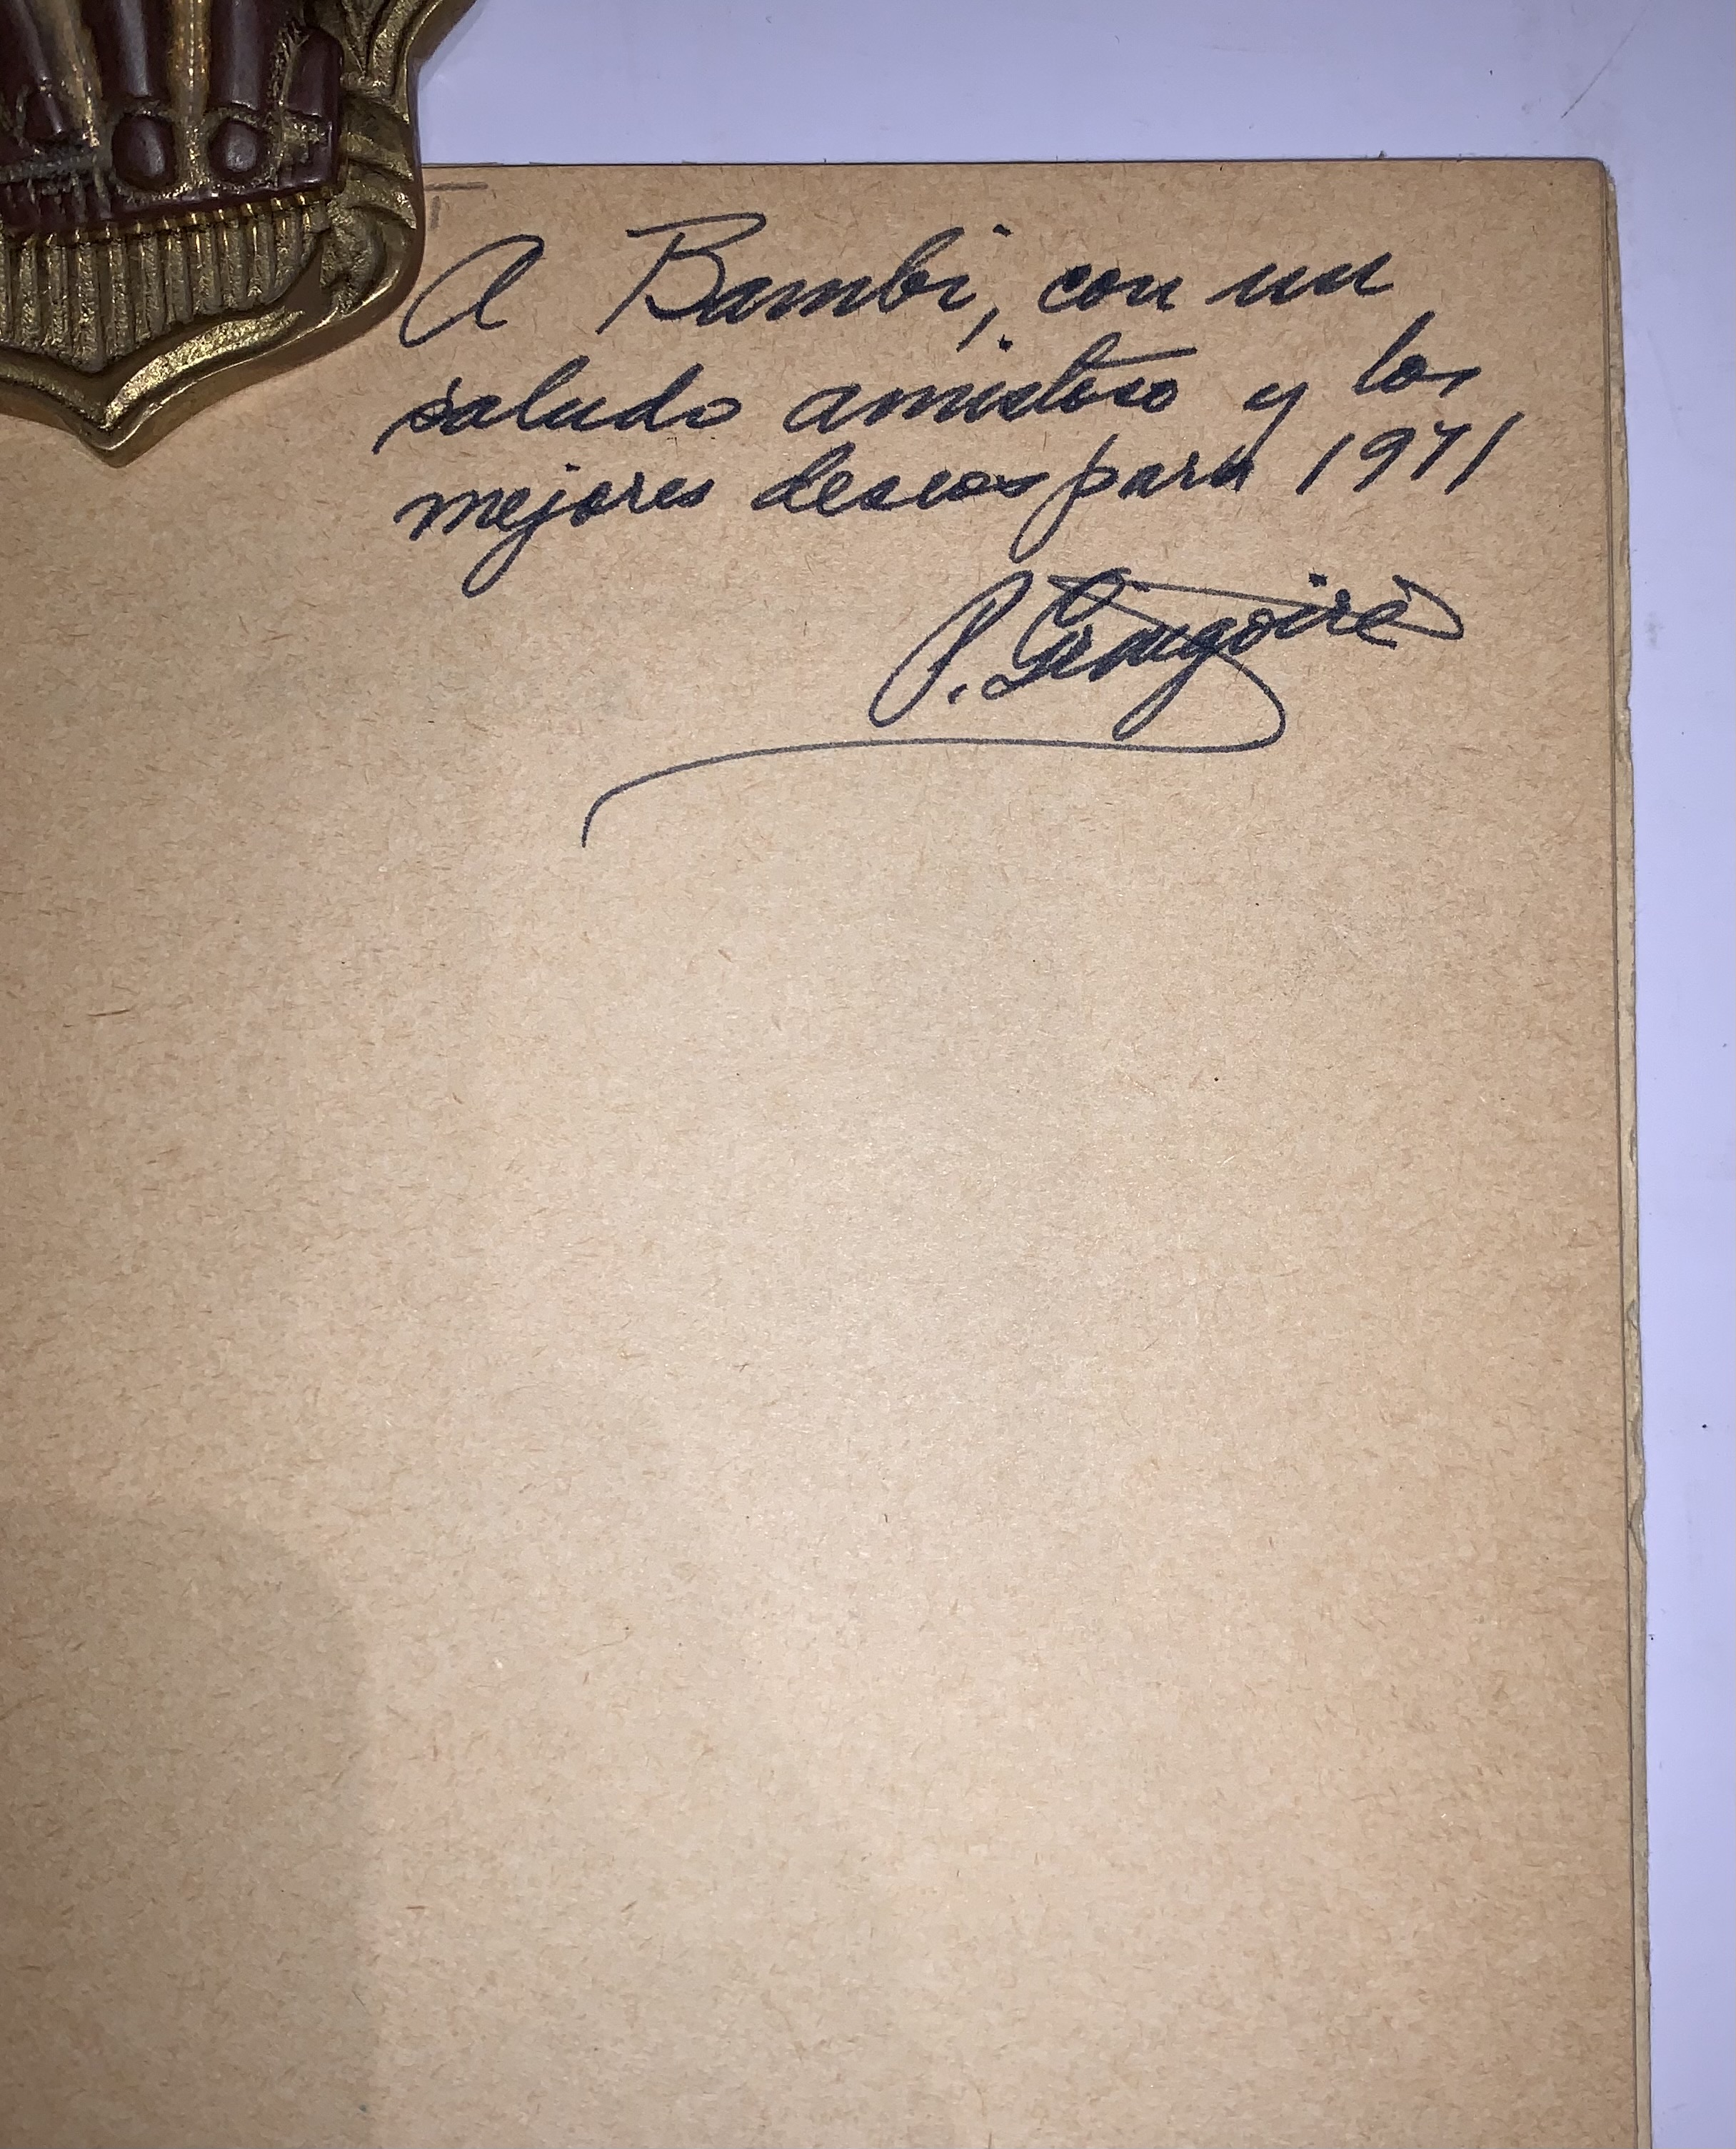 A Bambi, con un
saludo amistoso y los
mejores deseos para 1971
P.